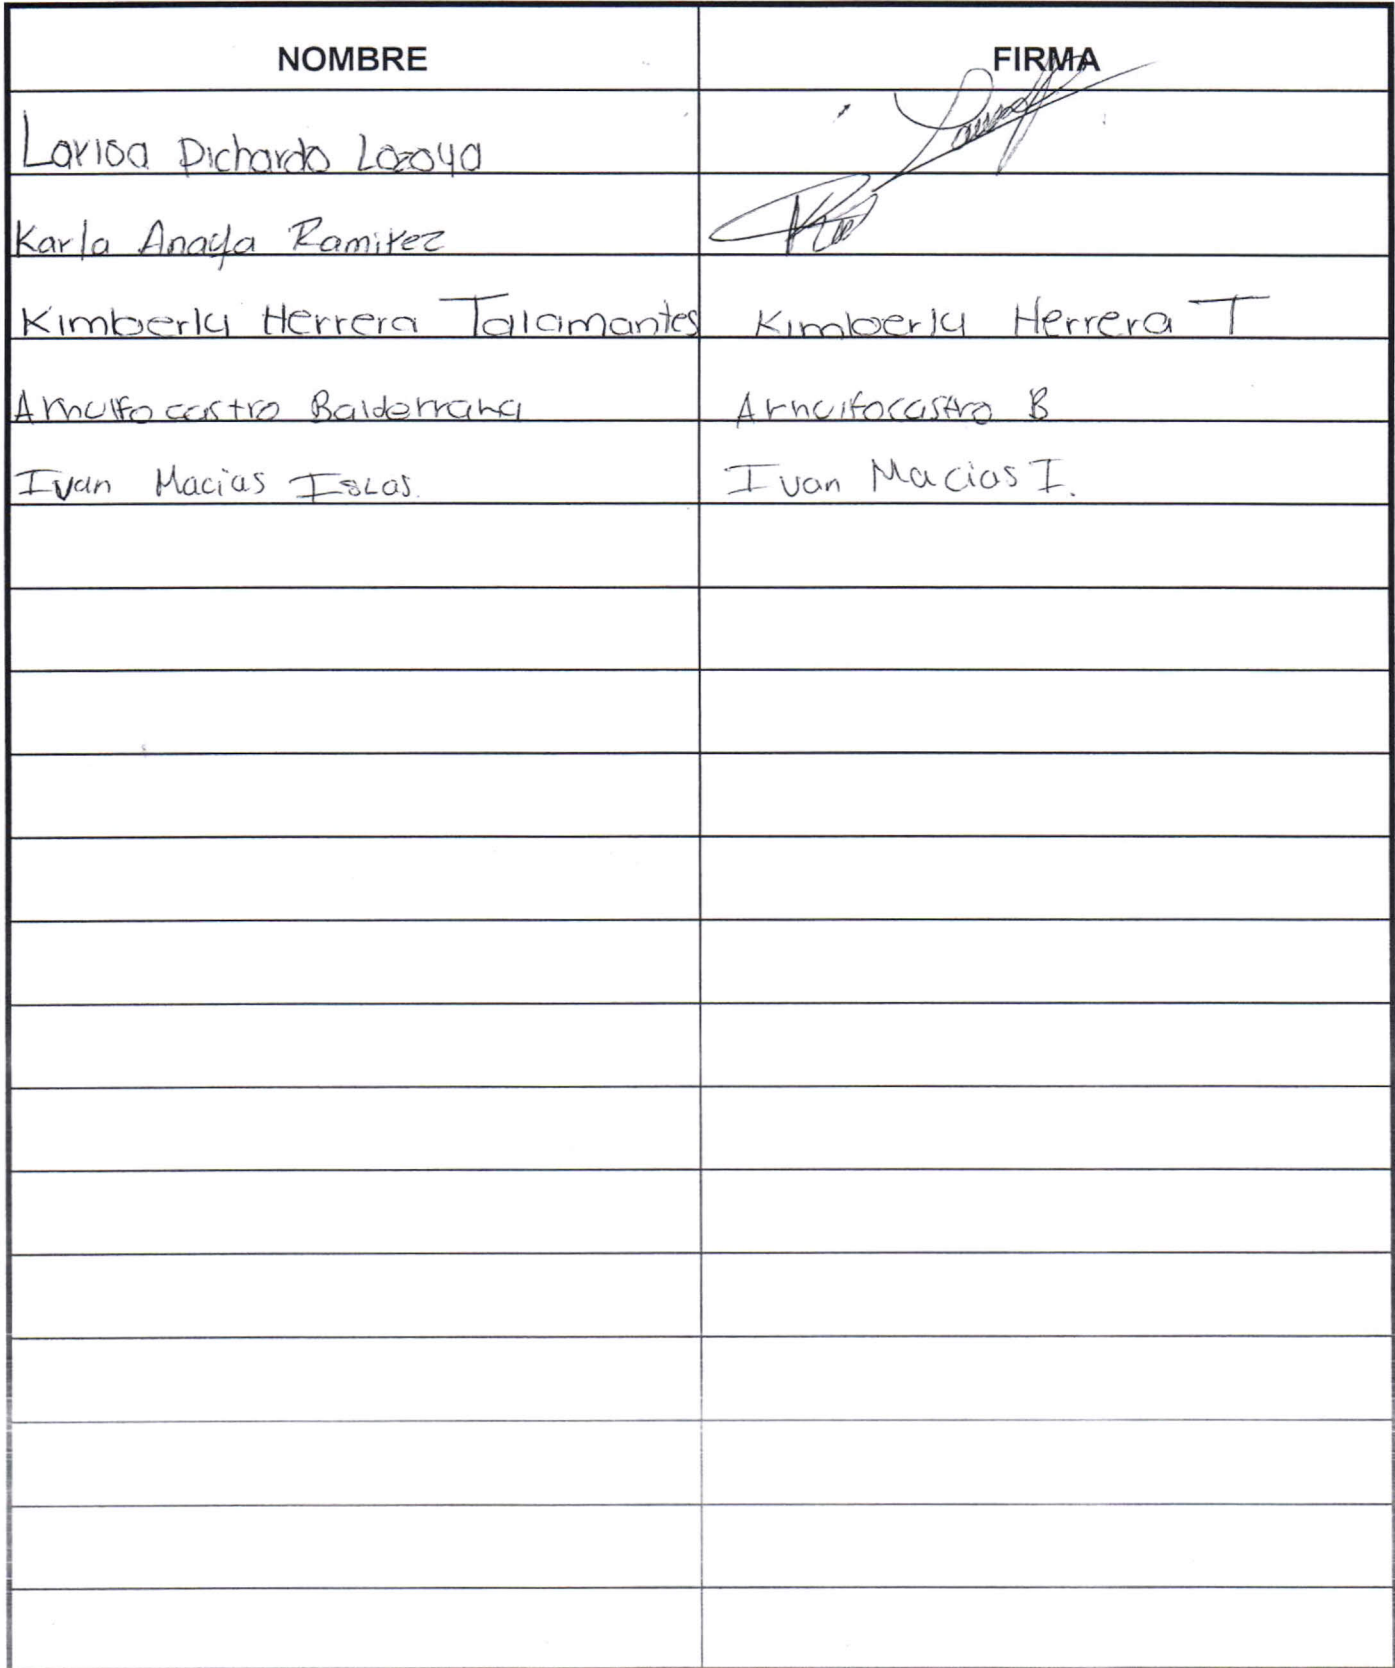 NOMBRE FIRMA
Larisa Pichardo Lozoya
Karla Anaya Ramirez
Kimberly Herrera Talamantes Kimberly Herrera T
Arnulfo castro Balderrama Arnulfo castro B
Ivan Macias Islas. Ivan Macias I.